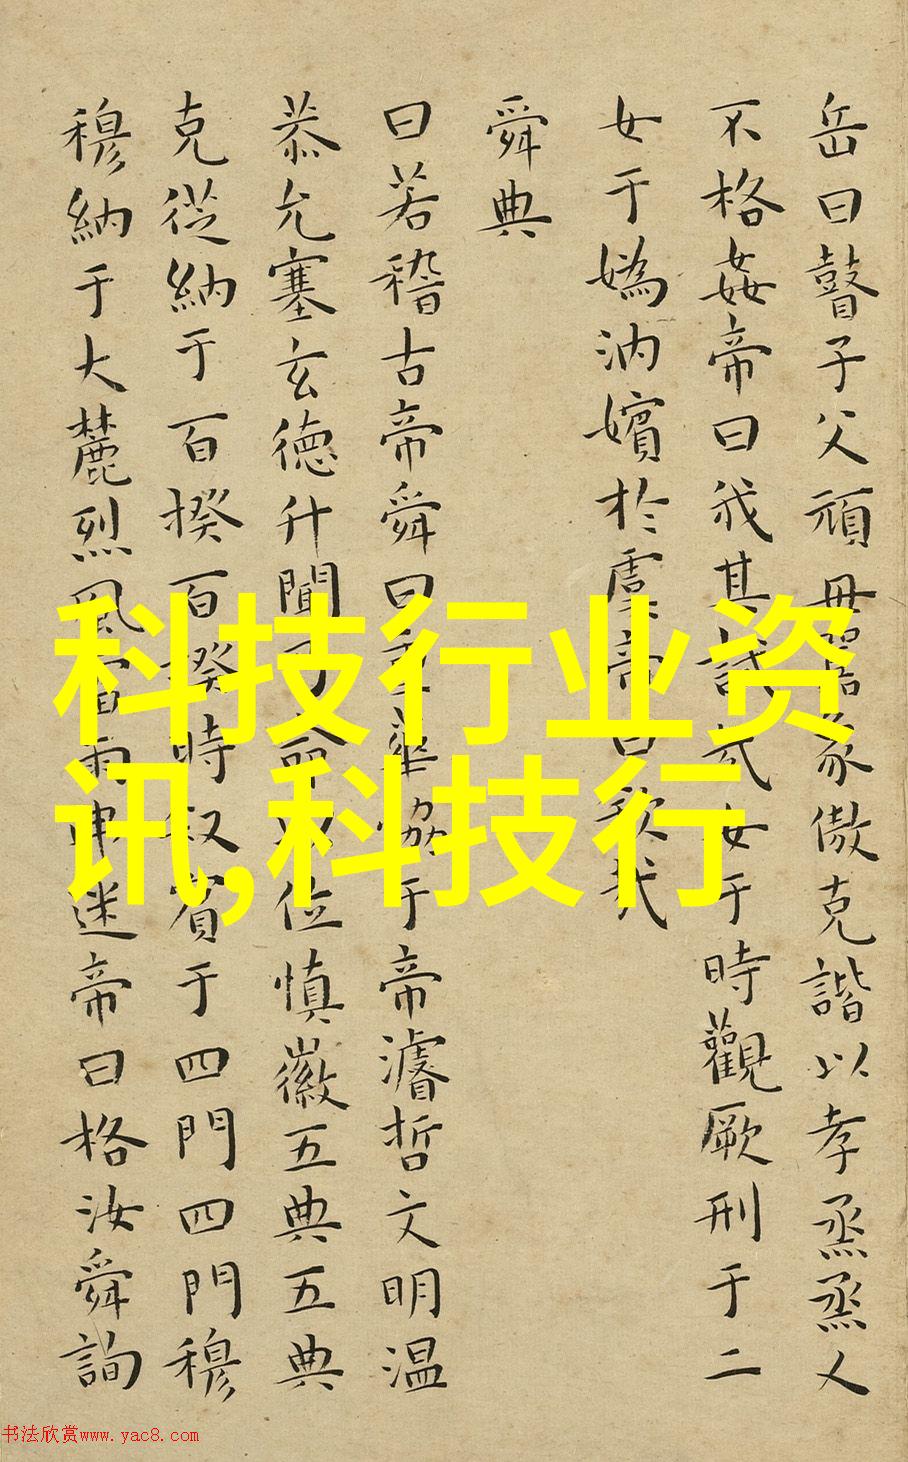 岳曰瞽子父頑毋嚚象傲克諧以孝烝烝乂
不格姦帝曰我其試哉女于時觀厥刑于二
女于媯汭嬪於虞帝曰欽哉
舜典
曰若稽古帝舜曰重華協于帝濬哲文明温
恭允塞玄德升聞乃命以位慎徽五典五典
克從納于百揆百揆時叙賔于四門四門穆
穆納于大麓烈風雷雨弗迷帝曰格汝舜詢
科技行业资
讯,科技行
书法欣赏www.yac8.com